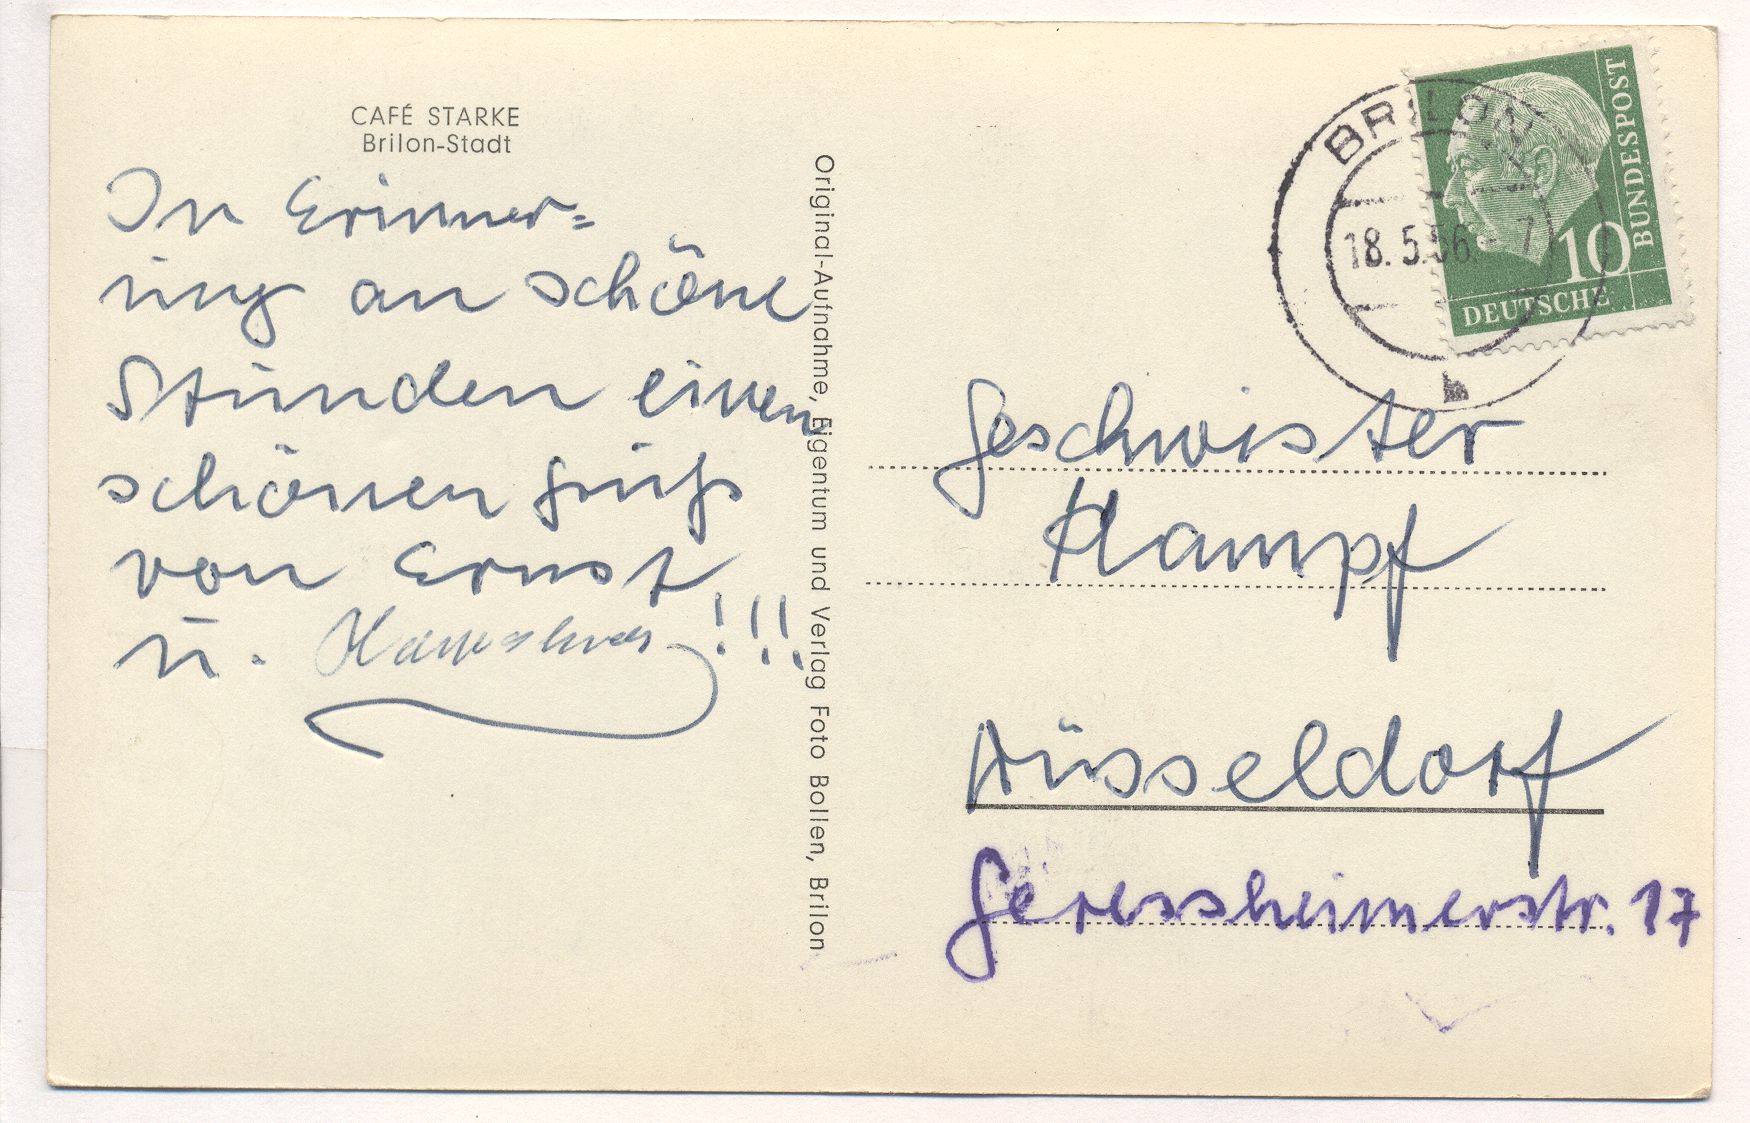 CAFÉ STARKE
Brilon-Stadt
In Erinner=
ung an schöne
Stunden einen
schönen Gruß
von Ernst
u. !!!
Original-Aufnahme, Eigentum und Verlag Foto Bollen, Brilon
BRILON
18.5.56.- 7
b
10
DEUTSCHE
BUNDESPOST
Geschwister
Kampf
Düsseldorf
Gerresheimerstr. 17